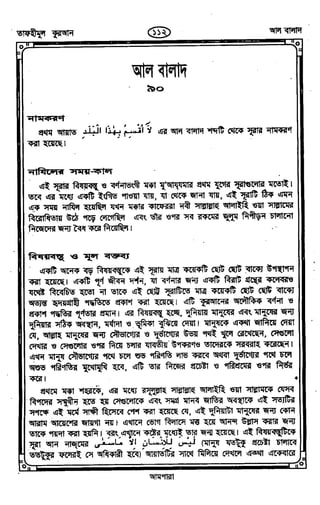 তাফহীমুল কুরআন
১১২
আল বালাদ
আল বালাদ
৯০
নামকরণ
প্রথম আয়াত لَا أُقْسِمُ بِهٰذَا الْبَلَدِ এর আল বালাদ শব্দটি থেকে সূরার নামকরণ
করা হয়েছে।
নাযিলের সময়-কাল
এই সূরার বিষয়বস্তু ও বর্ণনাভংগী মক্কা মু'আয্যমার প্রথম যুগের সূরাগুলোর মতোই।
তবে এর মধ্যে একটি ইংগিত পাওয়া যায়, যা থেকে জানা যায়, এই সূরাটি ঠিক এমন
এক সময় নাযিল হয়েছিল যখন মক্কার কাফেররা নবী সাল্লাল্লাহু আলাইহি ওয়া সাল্লামের
বিরোধিতায় উঠে পড়ে লেগেছিল এবং তাঁর ওপর সব রকমের জুলুম নিপীড়ন চালানো
নিজেদের জন্য বৈধ করে নিয়েছিল।
বিষয়বস্তু ও মূল বক্তব্য
একটি অনেক বড় বিষয়বস্তুকে এই সূরায় মাত্র কয়েকটি ছোট ছোট বাক্যে উপস্থাপন
করা হয়েছে। একটি পূর্ণ জীবন দর্শন, যা বর্ণনার জন্য একটি বিরাট গ্রন্থের কলেবরও
যথেষ্ট বিবেচিত হতো না তাকে এই ছোট্ট সূরাটিতে মাত্র কয়েকটি ছোট ছোট বাক্যে
অত্যন্ত হৃদয়গ্রাহী পদ্ধতিতে প্রকাশ করা হয়েছে। এটি কুরআনের অলৌকিক বর্ণনা ও
প্রকাশ পদ্ধতির পূর্ণতার প্রমাণ। এর বিষয়বস্তু হচ্ছে, দুনিয়ায় মানুষের এবং মানুষের জন্য
দুনিয়ার সঠিক অবস্থান, মর্যাদা ও ভূমিকা বুঝিয়ে দেয়া। মানুষকে একথা জানিয়ে দেয়া
যে, আল্লাহ মানুষের জন্য সৌভাগ্যের ও দুর্ভাগ্যের উভয় পথই খুলে রেখেছেন, সেগুলো
দেখার ও সেগুলোর ওপর দিয়ে চলার যাবতীয় উপকরণও তাদেরকে সরবরাহ করেছেন।
এখন মানুষ সৌভাগ্যের পথে চলে শুভ পরিণতি লাভ করবে অথবা দুর্ভাগ্যের পথে চলে
অশুভ পরিণতির মুখোমুখি হবে, এটি তার নিজের প্রচেষ্টা ও পরিশ্রমের ওপর নির্ভর
করে।
প্রথমে মক্কা শহরকে, এর মধ্যে রসূলুল্লাহ সাল্লাল্লাহু আলাইহি ওয়া সাল্লামকে যেসব
বিপদের সম্মুখীন হতে হয় সেগুলোকে এবং সমগ্র মানব জাতির অবস্থাকে এই সত্যটির
সপক্ষে এই মর্মে সাক্ষী হিসেবে পেশ করা হয়েছে যে, এই দুনিয়াটা মানুষের জন্য কোন
আরাম আয়েশের জায়গা নয়। এখানে ভোগ বিলাসে মত্ত হয়ে আনন্দ উল্লাস করার জন্য
তাকে পয়দা করা হয়নি। বরং এখানে কষ্টের মধ্যেই তার জন্ম হয়েছে। এই বিষয়বস্তুটিকে
সূরা আন নাজমের لَيْسَ لِلْإِنْسَانِ إِلَّا مَا سَعٰى (মানুষ যতটুকু প্রচেষ্টা চালাবে
ততটুকুর ফলেরই সে অধিকারী হবে) আয়াতটির সাথে মিলিয়ে দেখলে একথা একেবারে
আমপারা